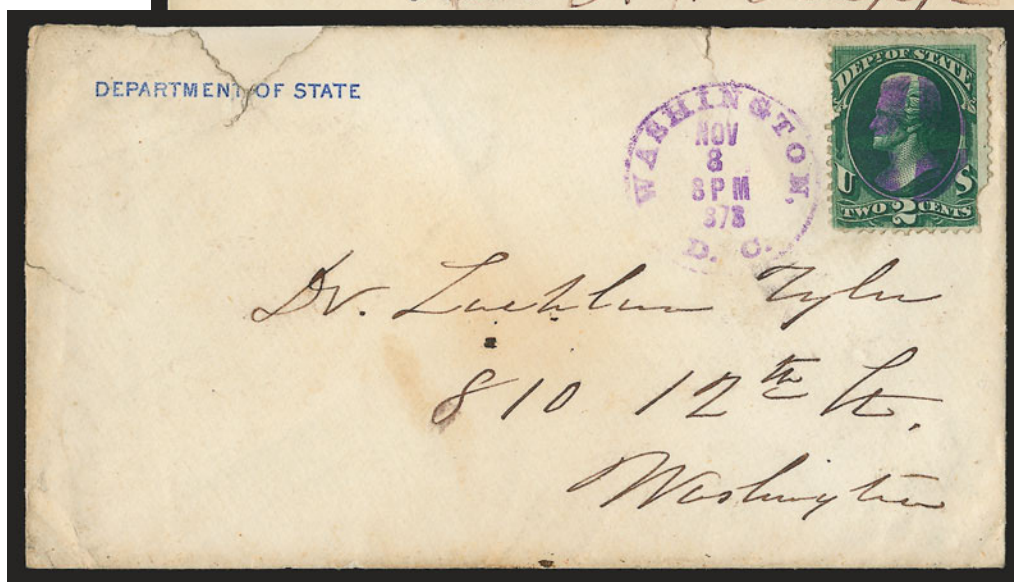 DEPARTMENT OF STATE
WASHINGTON,
NOV
8
8 PM
1878
D. C.
DEPT. OF STATE
U S
TWO 2 CENTS
Dr. Lachlan Tyler
810 12th St.
Washington